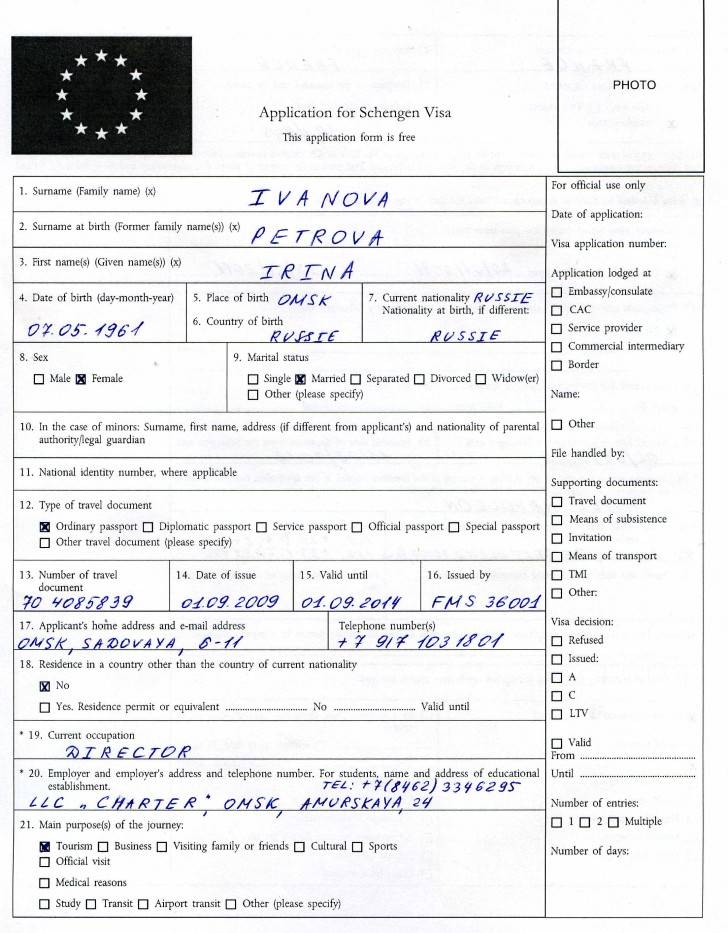 PHOTO
Application for Schengen Visa
This application form is free
1. Surname (Family name) (x)
IVANOVA
2. Surname at birth (Former family name(s)) (x)
PETROVA
3. First name(s) (Given name(s)) (x)
IRINA
4. Date of birth (day-month-year)
07.05.1961
5. Place of birth OMSK
6. Country of birth
RUSSIE
7. Current nationality RUSSIE
Nationality at birth, if different:
RUSSIE
8. Sex
Male Female
9. Marital status
Single Married Separated Divorced Widow(er)
Other (please specify)
10. In the case of minors: Surname, first name, address (if different from applicant's) and nationality of parental
authority/legal guardian
11. National identity number, where applicable
12. Type of travel document
Ordinary passport Diplomatic passport Service passport Official passport Special passport
Other travel document (please specify)
13. Number of travel
document
70 4085839
14. Date of issue
01.09.2009
15. Valid until
01.09.2014
16. Issued by
FMS 36001
17. Applicant's home address and e-mail address
OMSK, SADOVAYA, 6-11
Telephone number(s)
+7 917 103 1801
18. Residence in a country other than the country of current nationality
No
Yes. Residence permit or equivalent ............................ No ............................ Valid until
* 19. Current occupation
DIRECTOR
* 20. Employer and employer's address and telephone number. For students, name and address of educational
establishment. TEL: +7(8462) 3346295
LLC „CHARTER", OMSK, AMURSKAYA, 24
21. Main purpose(s) of the journey:
Tourism Business Visiting family or friends Cultural Sports
Official visit
Medical reasons
Study Transit Airport transit Other (please specify)
For official use only
Date of application:
Visa application number:
Application lodged at
Embassy/consulate
CAC
Service provider
Commercial intermediary
Border
Name:
Other
File handled by:
Supporting documents:
Travel document
Means of subsistence
Invitation
Means of transport
TMI
Other:
Visa decision:
Refused
Issued:
A
C
LTV
Valid
From ........................................
Until ........................................
Number of entries:
1 2 Multiple
Number of days: